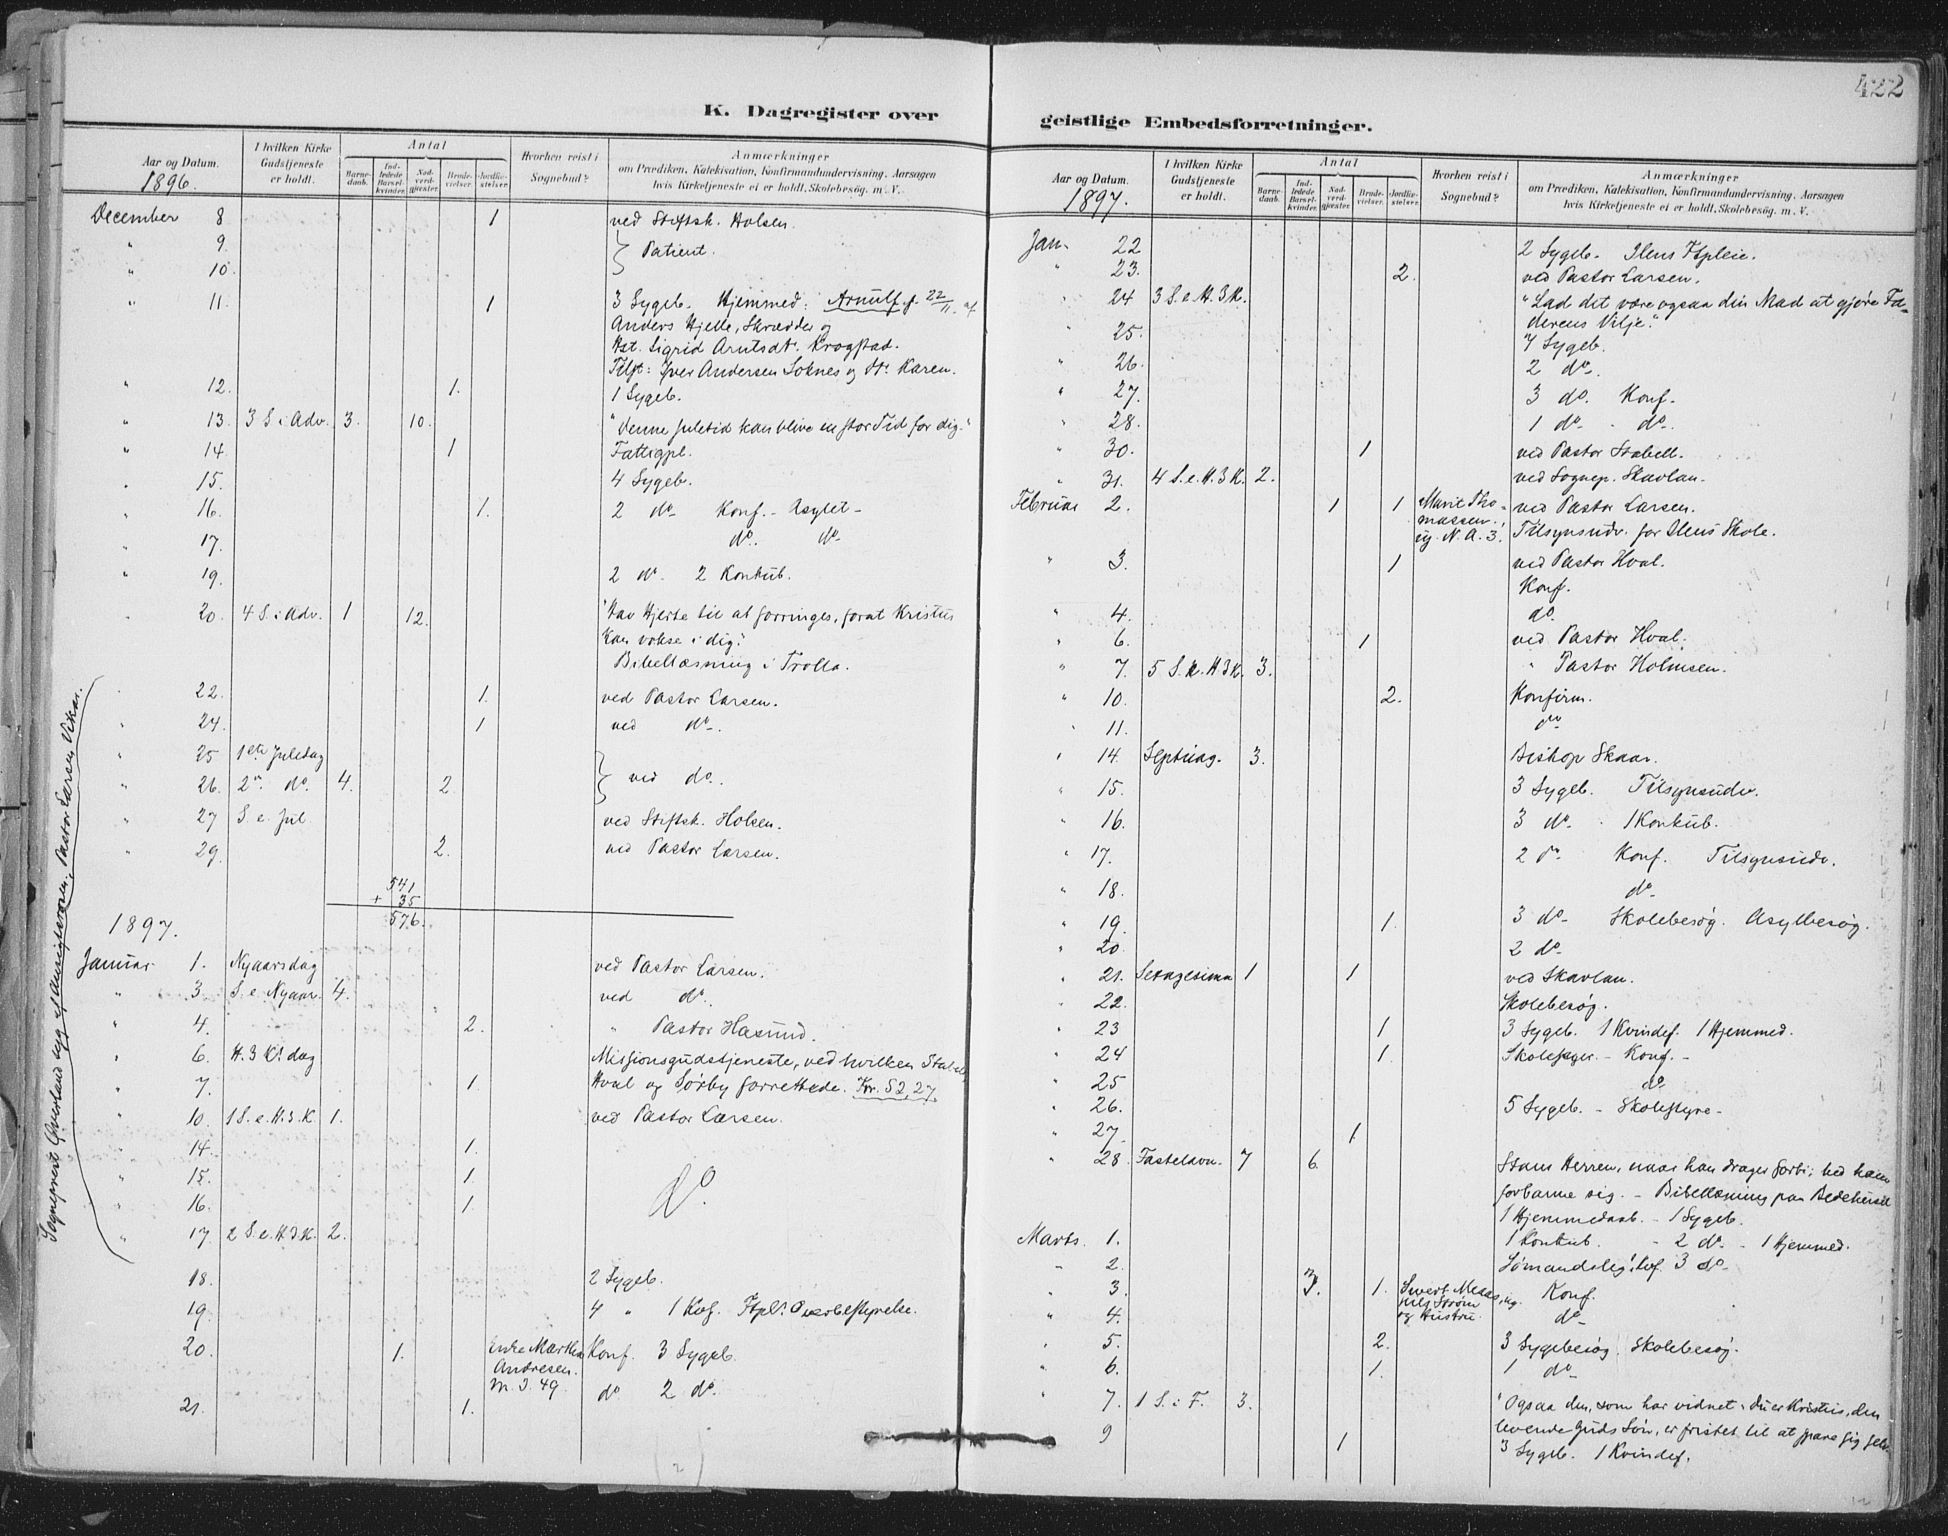 422
K. Dagregister over
Aar og Datum.
1896.
I hvilken Kirke Gudstjeneste er holdt.
Antal
Barnedaab.
Indledede Barselkvinder.
Nadverdgjester.
Brudevielser.
Jordfæstelser.
Hvorhen reist i Sognebud?
Anmærkninger
om Prædiken, Katekisation, Konfirmandundervisning, Aarsagen
hvis Kirketjeneste ei er holdt, Skolebesøg. m. V.
December 8 1 ved Stiftsk. Holsen.
" 9. } Patient.
" 10.
" 11. 1 3 Sygeb. Hjemmed. Arnulf f. 22/11. af
Anders Hjelle, Skrædder og
Hst. Sigrid Arntsdt. Krogstad.
Tilst: Iver Andersen Loknes og H. Karen.
" 12. 1. 1 Sygeb.
" 13. 3 S. i Adv. 3. 10. "Denne Juletid kan blive en stor Tid for dig."
" 14. 1 Fattigpl.
" 15. 4 Sygeb.
" 16. 1. 2 do Konf. - Asylet -
" 17. do. do
" 19. 2 do. 2 Konkub.
" 20. 4 S. i Adv. 1 12. "Hav Hjerte til at forringes, forat Kristus
kan vokse i dig."
Bibellæsning i Trolla.
" 22. 1. ved Pastor Larsen.
" 24. 1 ved do.
" 25 1ste Juledag
" 26. 2n. do. 4. 2. } ved do.
" 27 S. e. Jul ved Stiftsk. Holsen.
" 29. 2. ved Pastor Larsen.
541
+ 35
576.
1897.
Januar 1. Nyaarsdag ved Pastor Larsen.
" 3. S. e. Nyaar. 4. ved do.
" 4. 2. " Pastor Hasund.
" 6. H. 3 K. dag Missionsgudstjeneste, ved hvilken Stabell
" 7. 1. Hval og Sørby forrettede. Kr. 52,27.
" 10. 1 S. e. H. 3. K 1. ved Pastor Larsen.
" 14. 1.
" 15. 1. do.
" 16. 1.
" 17. 2 S. e. H. 3. K. 2.
18. 2 Sygeb.
19. 4 " 1 Kvf. Ftpl. Overbestyrelse.
20. 1. Enke Martha Konf. 3 Sygeb.
Andresen.
M. I. 49. do 2 do.
21. 1.
Sogneprest Qverland syg af Ansigtsrosen, Pastor Larsen Vikar.
geistlige Embedsforretninger.
Aar og Datum.
1897.
I hvilken Kirke Gudstjeneste er holdt.
Antal
Barnedaab.
Indledede Barselkvinder.
Nadverdgjester.
Brudevielser.
Jordfæstelser.
Hvorhen reist i Sognebud?
Anmærkninger
om Prædiken, Katekisation, Konfirmandundervisning, Aarsagen
hvis Kirketjeneste ei er holdt, Skolebesøg. m. V.
Jan. 22 2 Sygeb. Ilens Ftpleie.
" 23. 2. ved Pastor Larsen.
" 24 3 S. e. H. 3 K. "Lad det være ogsaa din Mad at gjøre Fa-
derens Vilje."
" 25. 7 Sygeb.
" 26. 2 do.
" 27. 3 do. Konf.
" 28. 1 do. do.
" 30. 1 ved Pastor Stabell.
" 31. 4 S. e. H. 3 K. 2. ved Sognep. Skavlan.
Februar 2. 1 1 Marie Tho- ved Pastor Larsen.
massen.
ig. N. A. 3. Tilsynsudv. for Ilens Skole.
" 3. 1 ved Pastor Hval.
Konf.
" 4. do.
" 6. 1 ved Pastor Hval.
" 7. 5 S. e. H 3 K. 3. " Pastor Holmsen.
" 10. 2. Konfirm.
" 11. do
" 14. Septuag. 3. Biskop Skaar.
" 15. 3 Sygeb. Tilsynsudv.
" 16. 3 do. 1 Konkub.
" 17. 2 do Konf. Tilsynsudv.
" 18. do.
" 19. 1. 3 do Skolebesøg. Asylbesøg.
" 20. 2 do.
" 21. Sexagesima 1 1 ved Skavlan.
" 22. Skolebesøg.
" 23 1 3 Sygeb. 1 Kvindef. 1 Hjemmed.
" 24 1. Konf. -
" 25 do.
" 26. 5 Sygeb. - Skolestyre -
" 27. 1.
" 28. Fastelavn. 7 6. Stans Herren, naar han drager forbi; bed ham
forbarme sig. - Bibellæsning paa Bedehuset
1 Hjemmedaab. - 1 Sygeb.
Marts 1. 1 Konkub. - 2 do. - 1 Hjemmed.
" 2. 3 do
" 3. 3. 1. Konf.
" 4. og Hustru. do
" 5. 2. 3 Sygebesøg. Skolebesøg.
" 6. 1. 1 do
" 7. 1 S. i F. 3. "Ogsaa den, som har vidnet: du er Kristus, den
levende Guds Søn, er fristet til at spare sig selv.
9 1 3 Sygeb. 1 Kvindef.